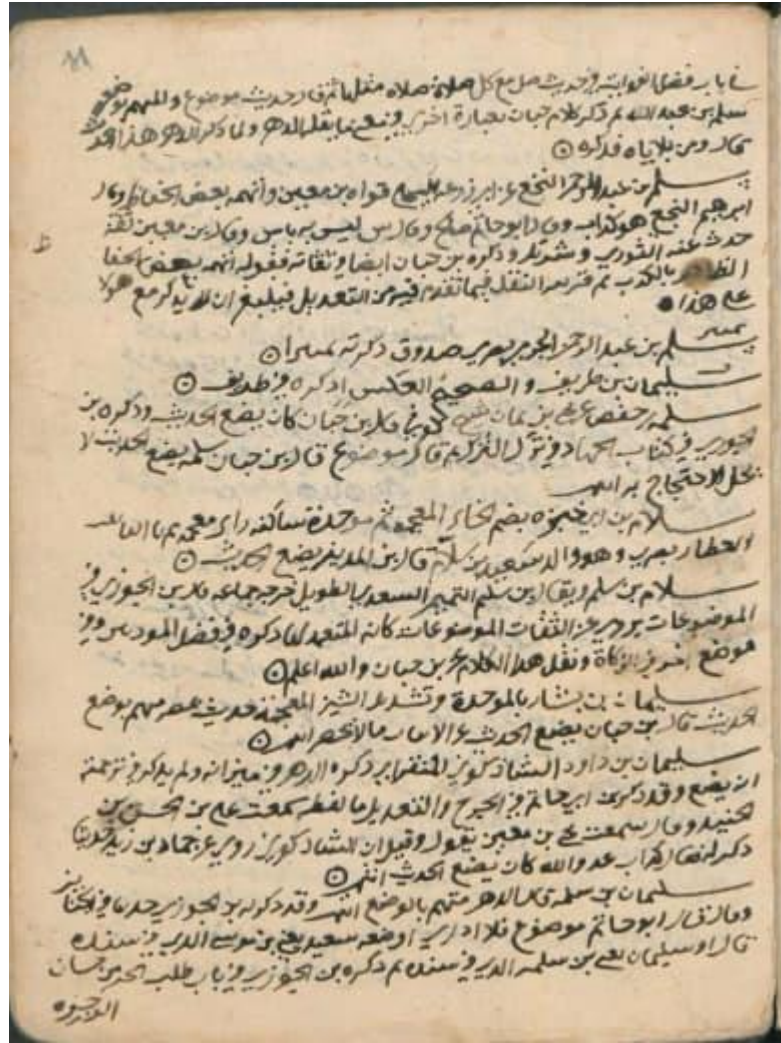 في باب قضاء الفوائت في حديث صل مع كل صلاة صلاة مثلها ثم قال حديث موضوع والمتهم بوضعه
سلم بن عبد الله ثم ذكر كلام حبان بعبارة اخرى ولما ذكر الذهبي هذا الحديث
قال ومن بلاياه فذكره
سلم بن عبد الرحمن النخعي قواه بن معين واتهمه بعض الحفاظ وقال
ابرهيم النخعي هو كذاب وقال ابو حاتم صالح وقال س ليس به باس وقال بن معين ثقة
حدث عنه الثوري وشريك وذكره بن حبان ايضا في ثقاته فقوله اتهمه بعض الحفاظ
الظاهر بالكذب ثم فيما تقدم فيه من التعديل فينبغي ان لا يذكر مع هولا
على هذا
سلم بن عبد الرحمن الجرمي بصري صدوق ذكرته تمييزا
تمييز
سليمان بن طريف والصحيح العكس اذكره في طريف
سلمه بن حفص شيخ كوفي قال بن حبان كان يضع الحديث وذكره بن
الجوزي في كتاب قال موضوع قال بن حبان سلمه يضع الحديث لا
يحل الاحتجاج به انتهى
سلام بن ابي خبزه بضم الخاء المعجمه ثم موحدة ساكنه زاي معجمه ثم تا التانيث
العطار بصري وهو والد سعيد بن سلام قال بن المديني يضع الحديث
سلام بن سلم ويقال بن سليم التميمي السعدي الطويل خرجه جماعه قال بن الجوزي في
الموضوعات يروي عن الثقات الموضوعات كانه المتعمد لها ذكره في فضل المودنين وفي
موضع اخر في الزكاة ونقل هذا الكلام عن بن حبان والله اعلم
سليمان بن بشار بالموحدة وتشديد الشين المعجمة متهم بوضع
الحديث قال بن حبان يضع الحديث على الاثبات ما لا يحصى انتهى
سليمان بن داود الشاذكوني المنقري ذكره الذهبي في ميزانه ولم يذكر في ترجمته
انه يضع وقد ذكر بن ابي حاتم في الجرح والتعديل ما لفظه سمعت علي بن الحسين بن
الجنيد وقال سمعت يحيى بن معين يقول وقيل ان الشاذكوني روى عن حماد بن زيد حديثا
ذكر له فقال كذاب عدو الله كان يضع الحديث انتهى
سليمان بن سلمه قال الذهبي متهم بالوضع انتهى وقد ذكر له بن الجوزي حديثا في الجنائز
وقال قال ابو حاتم موضوع فلا ادري اوضعه سعيد يعني بن موسى الذي في سنده
قال او سليمان يعني بن سلمه الذي في سنده ثم ذكره بن الجوزي في باب طلب الخير من حسان
الوجوه